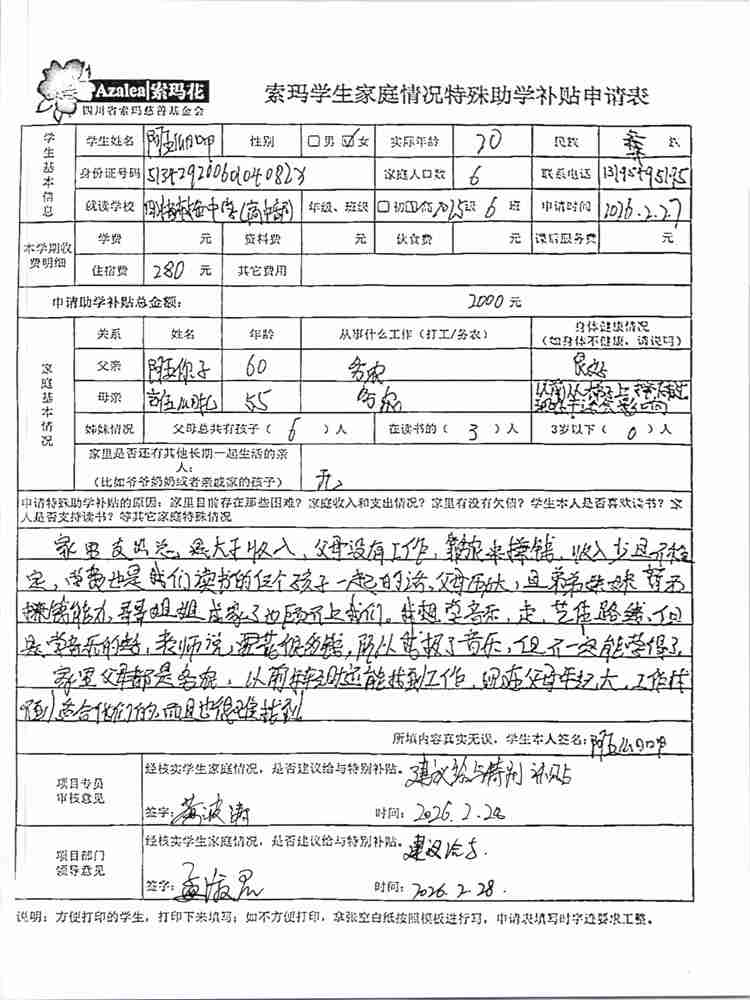 Azalea 索玛花
四川省索玛慈善基金会
索玛学生家庭情况特殊助学补贴申请表
学生基本信息
学生姓名 阿 性别 □男 ☑女 实际年龄 20 民族 彝 族
身份证号码 家庭人口数 6 联系电话
就读学校 中学(高中部) 年级、班级 □初 ☑高 2025级 6 班 申请时间 2026.2.27
本学期收费明细
学费 元 资料费 元 伙食费 元 课后服务费 元
住宿费 280 元 其它费用
申请助学补贴总金额: 2000 元
家庭基本情况
关系 姓名 年龄 从事什么工作(打工/务农) 身体健康情况(如身体不健康,请说明)
父亲 阿 子 60 务农 良好
母亲 55 务农 以前从
姊妹情况 父母总共有孩子( 6 )人 在读书的( 3 )人 3岁以下( 0 )人
家里是否还有其他长期一起生活的亲人:
(比如爷爷奶奶或者亲戚家的孩子) 无
申请特殊助学补贴的原因:家里目前存在那些困难?家庭收入和支出情况?家里有没有欠债?学生本人是否喜欢读书?家
人是否支持读书?等其它家庭特殊情况
家里支出总是大于收入,父母没有工作,靠 来挣钱,收入少且不稳
定, 也是我们读书的 个孩子一起的话,父母 大,且弟弟妹妹
挣钱能力,哥哥姐姐成家了也顾不上我们。我想学音乐,走艺体路线,但
是学音乐的 ,老师说,要花很多钱,所以 了音乐,但不一定能学得了。
家里父母都是务农,以前 还能找到工作,现在父母年纪大,工作
适合他们的,而且也很难找到
所填内容真实无误,学生本人签名: 阿
项目专员审核意见
经核实学生家庭情况,是否建议给与特别补贴。 建议给与特别补贴
签字: 黄波 时间: 2026.2.28
项目部门领导意见
经核实学生家庭情况,是否建议给与特别补贴。 建议给予.
签字: 时间: 2026.2.28.
说明:方便打印的学生,打印下来填写;如不方便打印,拿张空白纸按照模板进行写,申请表填写时字迹要求工整。